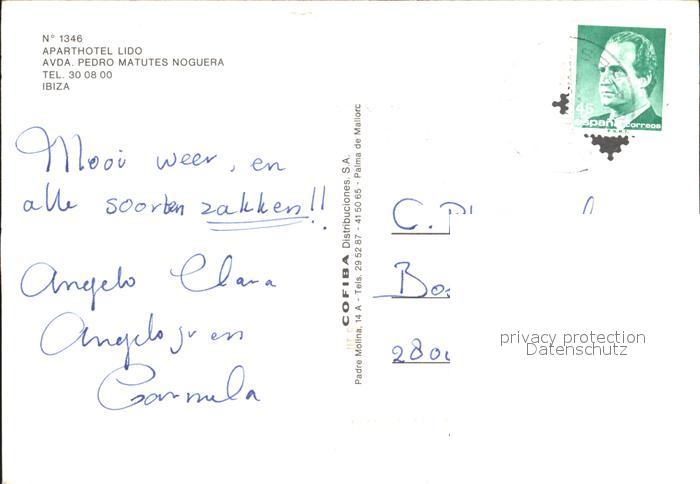 N° 1346
APARTHOTEL LIDO
AVDA. PEDRO MATUTES NOGUERA
TEL. 30 08 00
IBIZA
Mooi weer, en
alle soorten zakken!!
Angelo Clara
Angelo jr en
Carmela
COFIBA Distribuciones, S.A.
Padre Molina, 14 A - Tels. 29 52 87 - 41 50 65 - Palma de Mallorc
45
españa correos
C.
Bo
280
privacy protection
Datenschutz